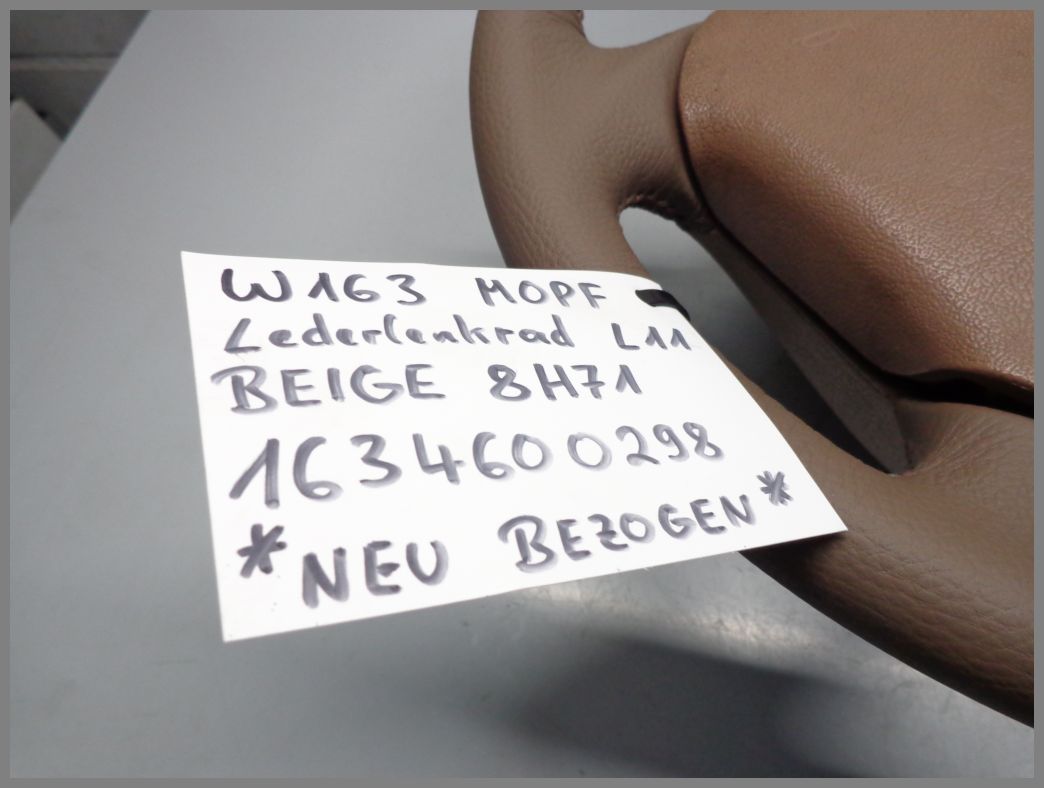 W163 MOPF
Lederlenkrad L11
BEIGE 8H71
1634600298
*NEU BEZOGEN*